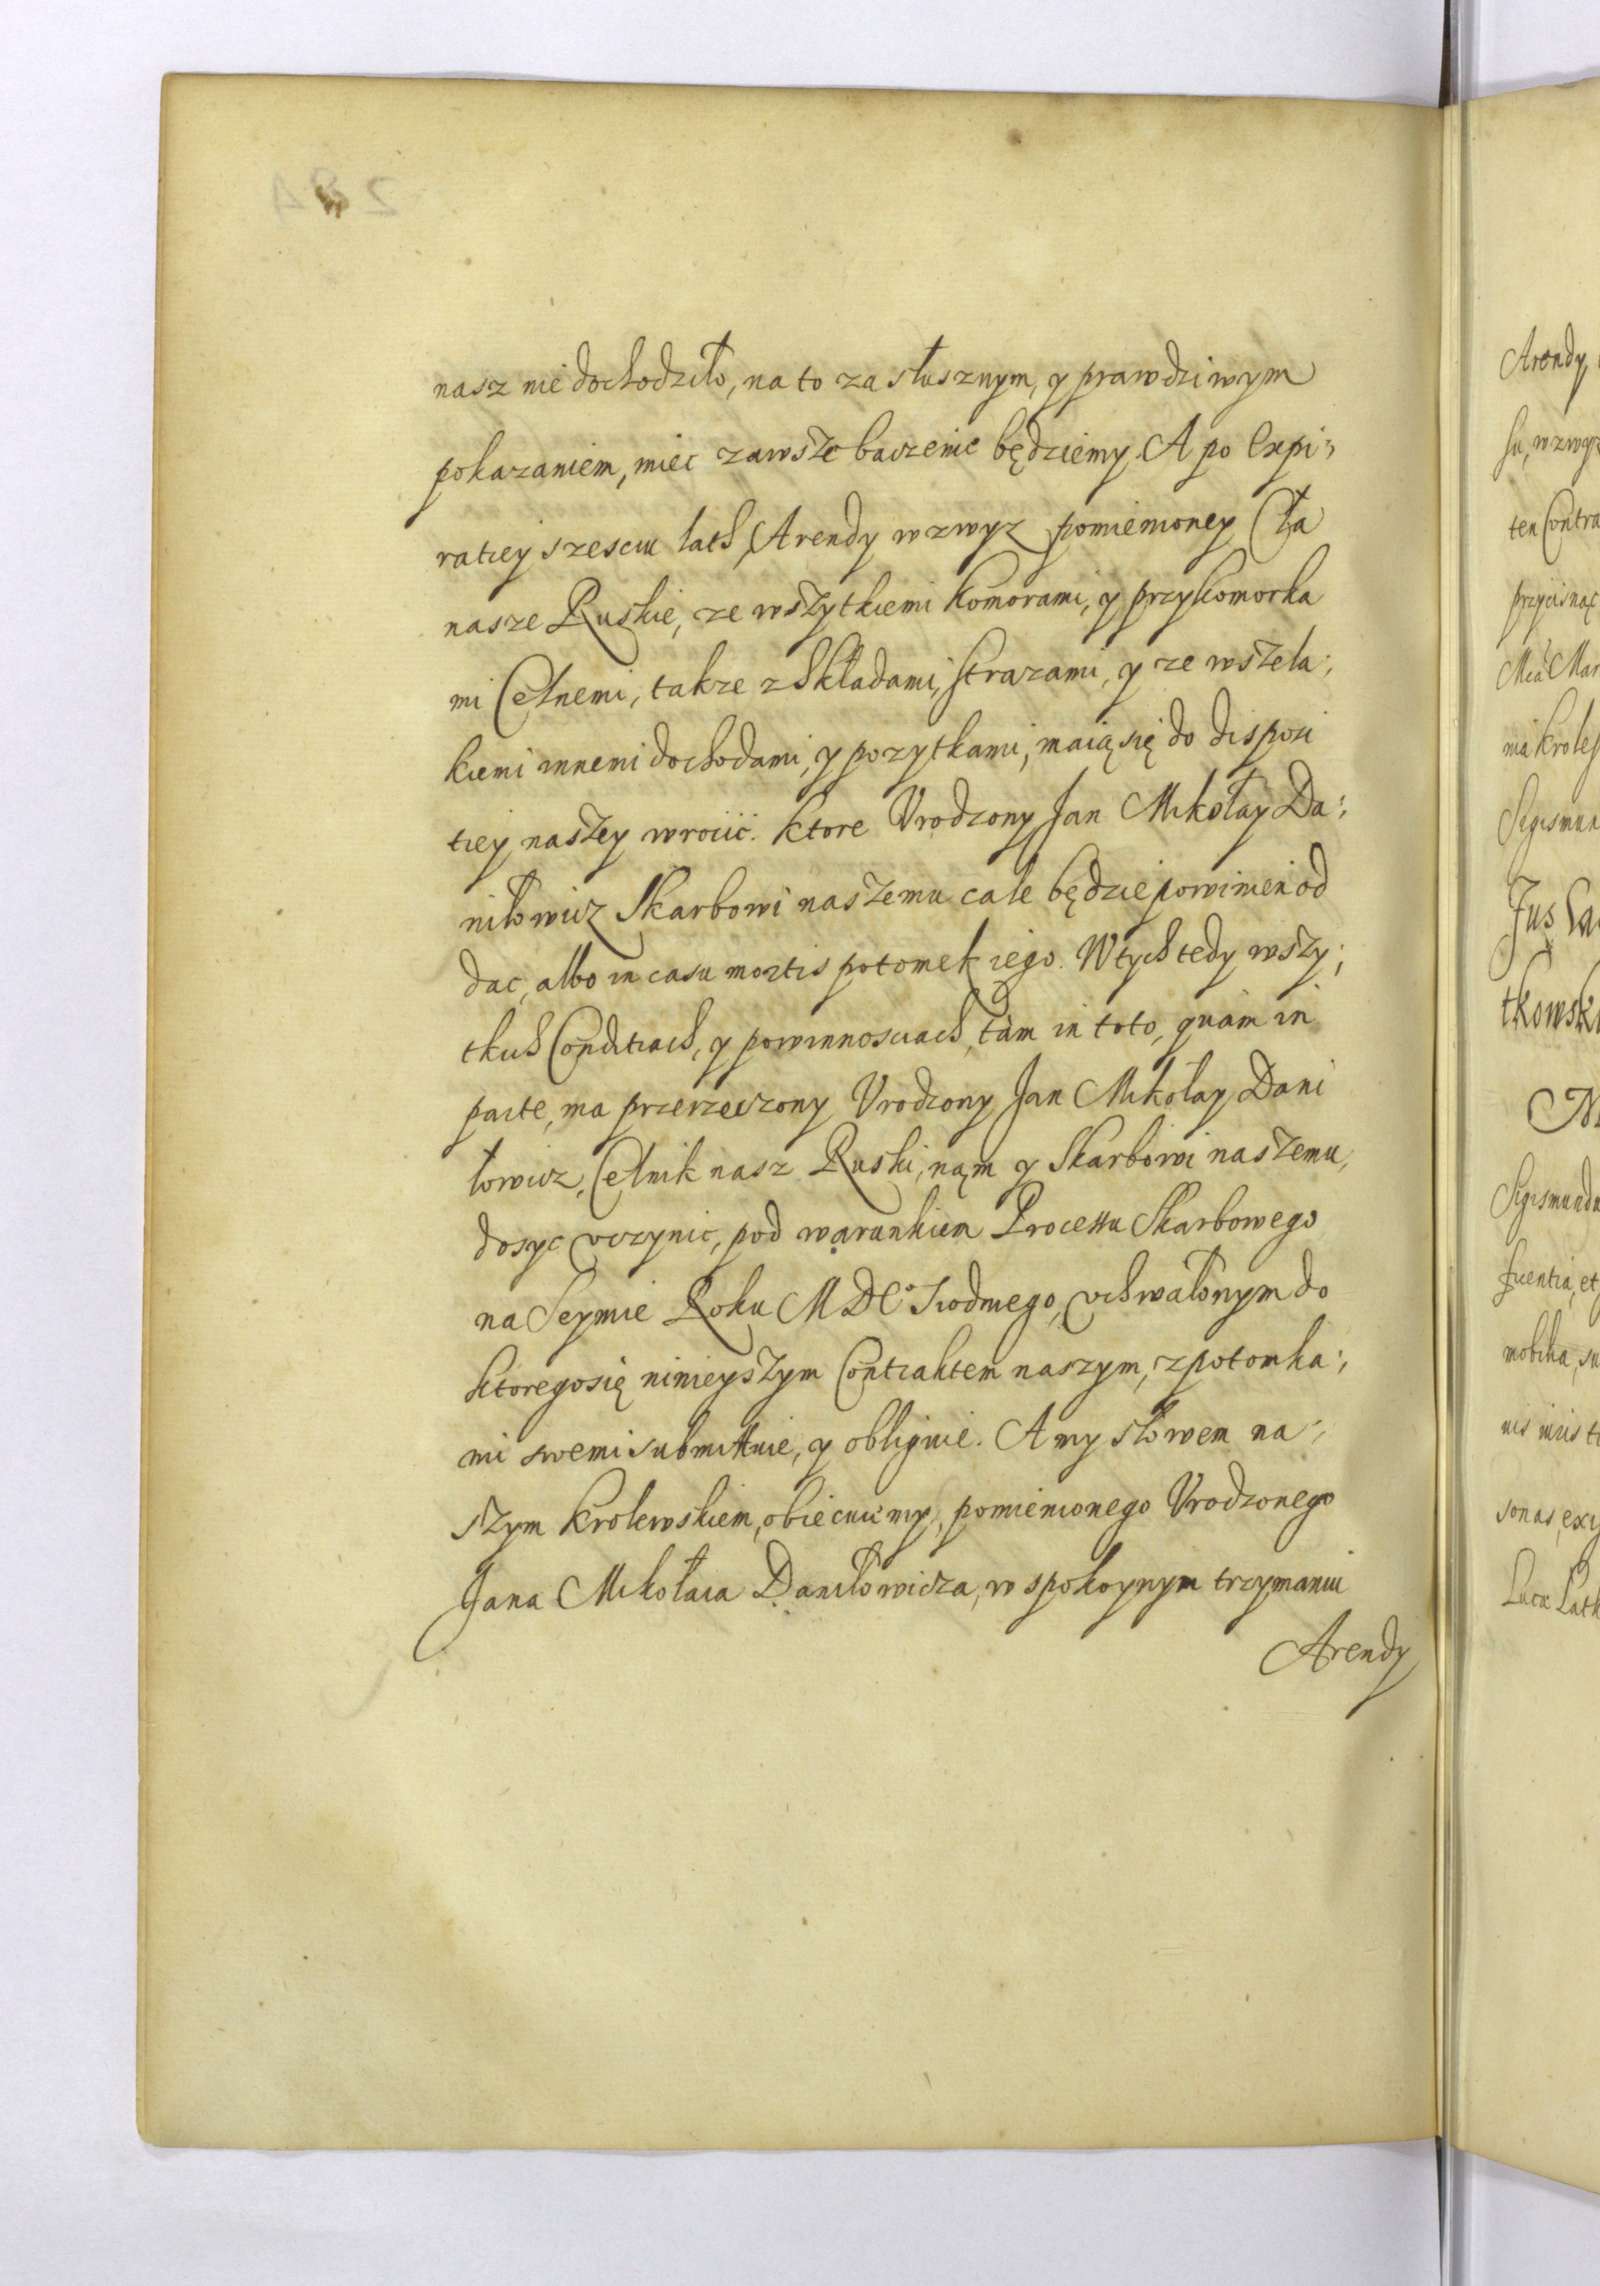 nasz nie dochodziło, na to za słusznym, y prawdziwym
pokazaniem, miec zawsze baczenie będziemy. A po Expi:
ratiey szesciu lath, Arendy wzwyz pomienioney Cła
nasze Ruskie, ze wszytkiemi Komorami, y przykomorka
mi Celnemi, takze z Składami, strazami, y ze wszela:
kiemi innemi dochodami, y pozytkami, maią się do dispozi
tiey naszey wrocić. Ktore Vrodzony Jan Mikołay Da:
niłowicz Skarbowi naszemu cale będzie powinien od
dac, albo in casu mortis potomek iego. W tych tedy wszy:
tkich Conditiach, y powinnosciach, tàm in toto, quàm in
parte, ma przerzeczony Vrodzony Jan Mikołay Dani
łowicz, Celnik nasz Ruski, nąm y Skarbowi naszemu,
dosyc vczynic, pod warunkiem Processu Skarbowego
na Seymie Roku MDCo Siodmego, vchwalonym do
ktorego się ninieyszym Contraktem naszym, z potomka:
mi swemi submittuie, y obliguie. A my słowem na:
szym Krolewskiem, obiecuiemy, pomienionego Vrodzonego
Jana Mikołaia Daniłowicza, w spokoynym trzymaniu
Arendy
Arendy
su, wzwyz
ten Contra
przycisnąc
nia Kroles
Sigismun
Jus
tkowski
Sigismundu
et
mobilia, su
sonas, exi
Luca